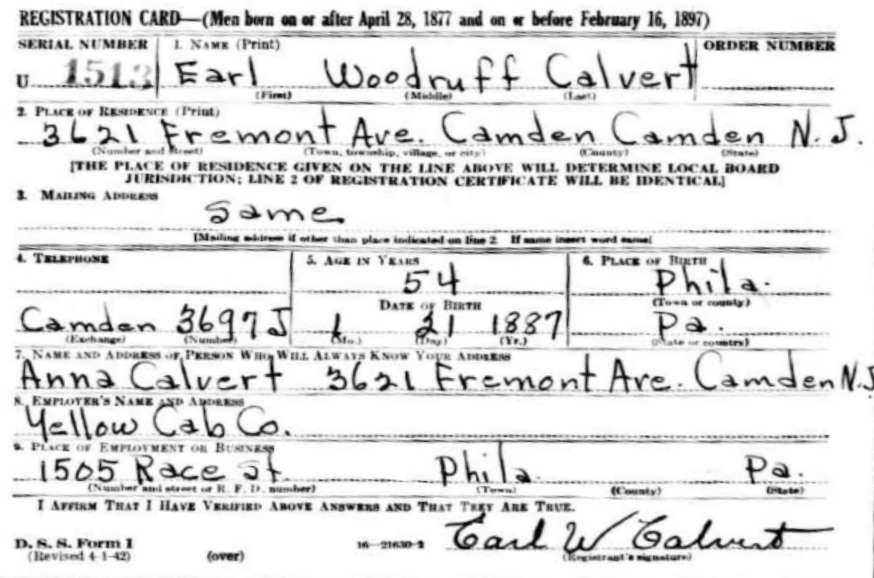 REGISTRATION CARD—(Men born on or after April 28, 1877 and on or before February 16, 1897)
SERIAL NUMBER 1. NAME (Print) ORDER NUMBER
U 1513 Earl Woodruff Calvert
(First) (Middle) (Last)
2. PLACE OF RESIDENCE (Print)
3621 Fremont Ave. Camden Camden N. J.
(Number and street) (Town, township, village, or city) (County) (State)
[THE PLACE OF RESIDENCE GIVEN ON THE LINE ABOVE WILL DETERMINE LOCAL BOARD
JURISDICTION; LINE 2 OF REGISTRATION CERTIFICATE WILL BE IDENTICAL]
3. MAILING ADDRESS
Same
[Mailing address if other than place indicated on line 2. If same insert word same]
4. TELEPHONE 5. AGE IN YEARS 6. PLACE OF BIRTH
54 Phila.
DATE OF BIRTH (Town or county)
Camden 3697J 1 21 1887 Pa.
(Exchange) (Number) (Mo.) (Day) (Yr.) (State or country)
7. NAME AND ADDRESS OF PERSON WHO WILL ALWAYS KNOW YOUR ADDRESS
Anna Calvert 3621 Fremont Ave. Camden N.J
8. EMPLOYER'S NAME AND ADDRESS
Yellow Cab Co.
9. PLACE OF EMPLOYMENT OR BUSINESS
1505 Race st Phila. Pa.
(Number and street or R. F. D. number) (Town) (County) (State)
I AFFIRM THAT I HAVE VERIFIED ABOVE ANSWERS AND THAT THEY ARE TRUE.
D. S. S. Form 1 16—21630-2 Earl W Calvert
(Revised 4-1-42) (over) (Registrant's signature)